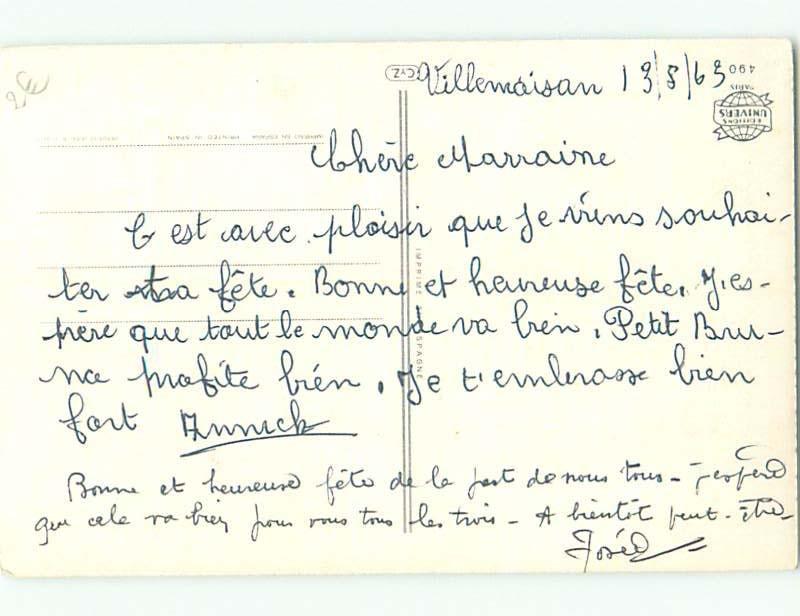 CYZ Villemoisan 13/8/63 490
PARIS
ÉDITIONS
UNIVERS
PRINTED IN SPAIN
Chère Marraine
C est avec plaisir que je viens souhai-
ter ta fête. Bonne et heureuse fête. J'es-
père que tout le monde va bien. Petit Bru-
no profite bien. Je t'embrasse bien
fort Annick
IMPRIMÉ ESPAGNE
Bonne et heureuse fête de la part de nous tous - j'espère
que cela va bien pour vous tous les trois - A bientôt peut-être
Josée